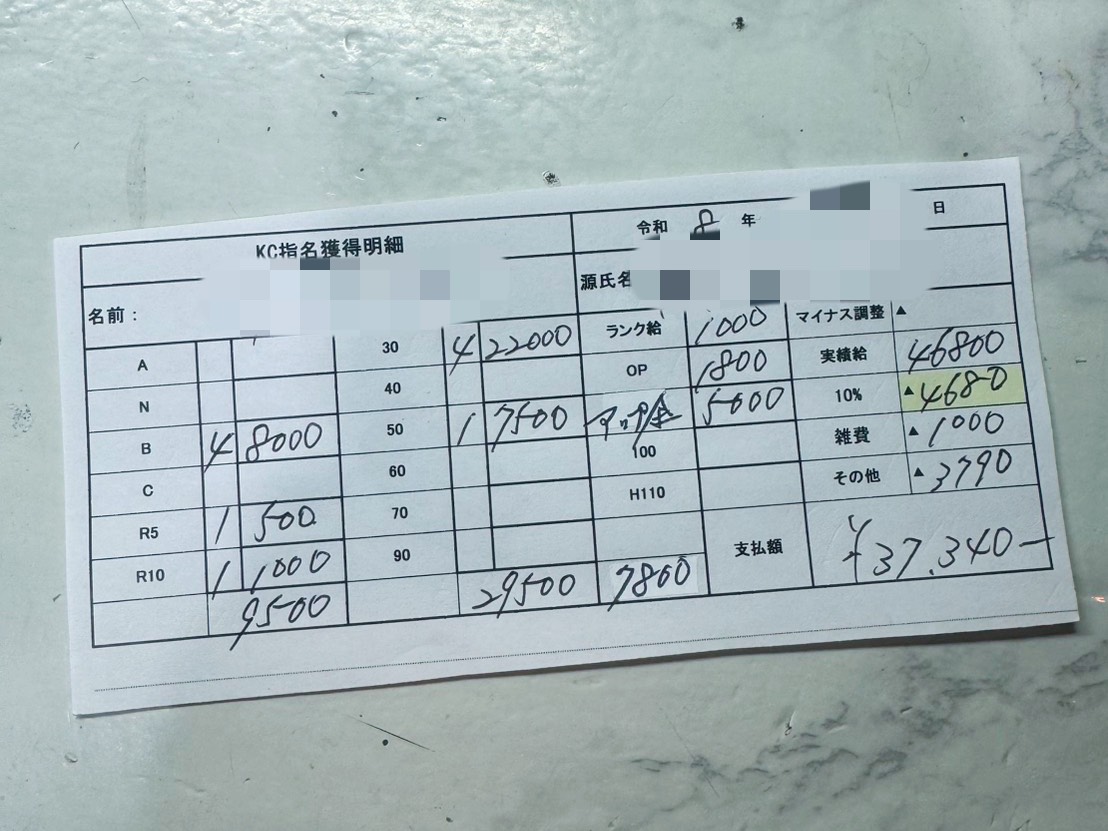 KC指名獲得明細 令和 8 年 日
名前： 源氏名
A 30 4 22000 ランク給 1000 マイナス調整 ▲
N 40 OP 1800 実績給 46800
B 4 8000 50 1 7500 5000 10% ▲4680
C 60 100 雑費 ▲1000
R5 1 500 70 H110 その他 ▲3790
R10 1 1000 90 支払額 ¥37.340-
9500 29500 7800